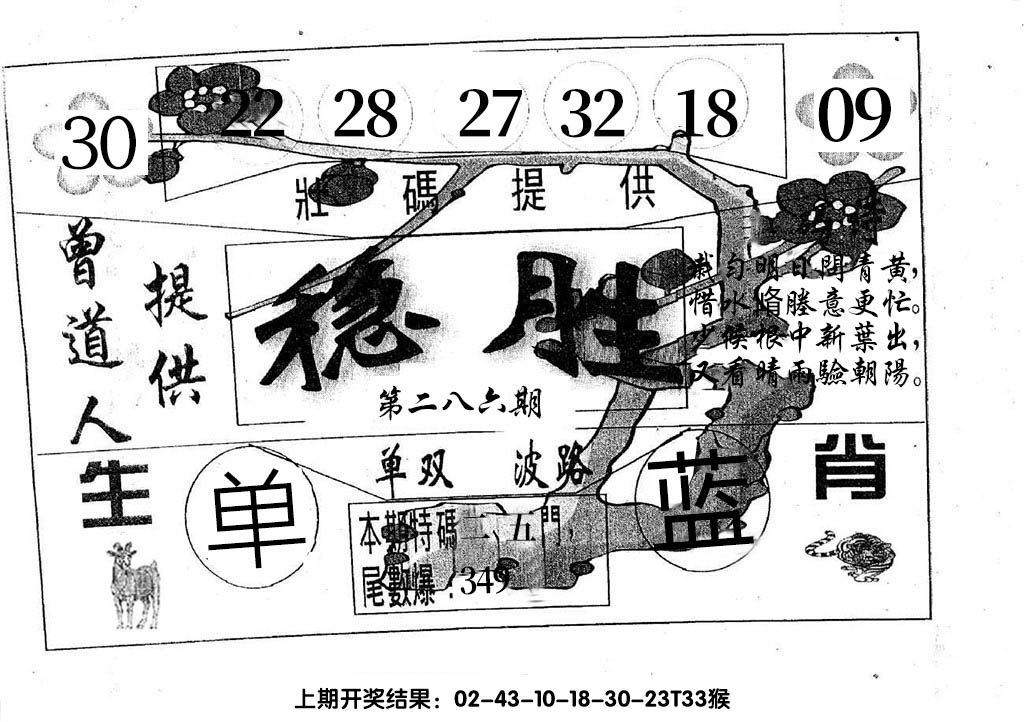 30 22 28 27 32 18 09
壯碼提供
曾道人
提供
稳胜
第二八六期
明日
惜水 意更忙。
根中新葉出，
又看晴雨驗朝陽。
单双 波路
生肖
单
蓝
本期特碼二、五門，
尾數爆：349
上期开奖结果：02-43-10-18-30-23T33猴